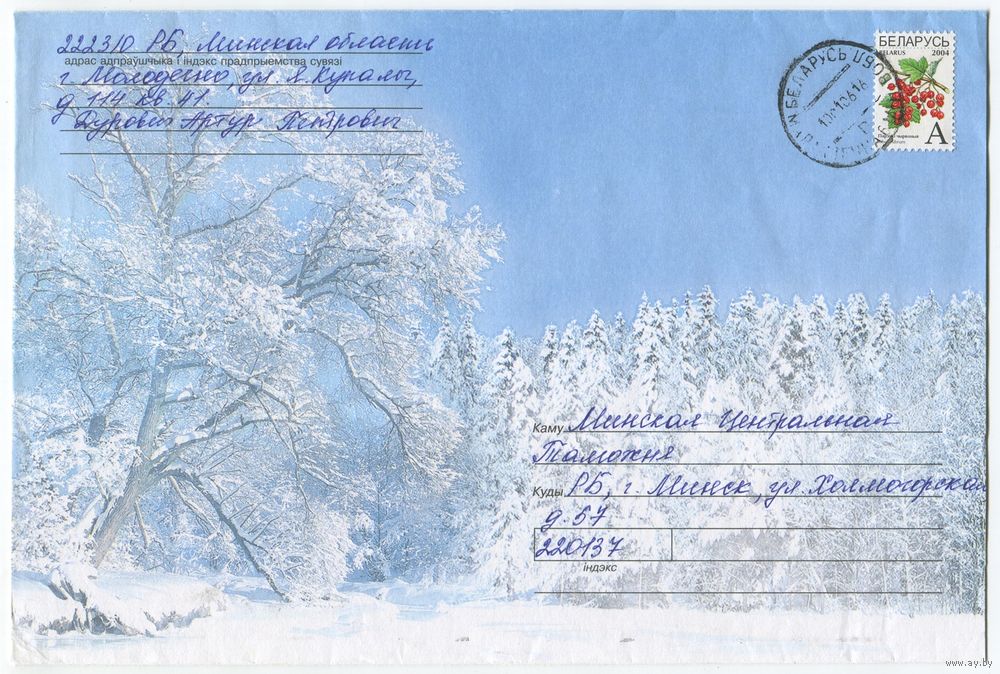 222310 РБ, Минская область
адрас адпраўшчыка і індэкс прадпрыемства сувязі
г. Молодечно, ул. Я. Купалы,
д. 114 кв. 41.
Дурович Артур Петрович
БЕЛАРУСЬ
BELARUS 2004
A
БЕЛАРУСЬ
Каму Минская Центральная
Таможня
Куды РБ, г. Минск, ул. Холмогорская
д. 57
220137
індэкс
www.ay.by